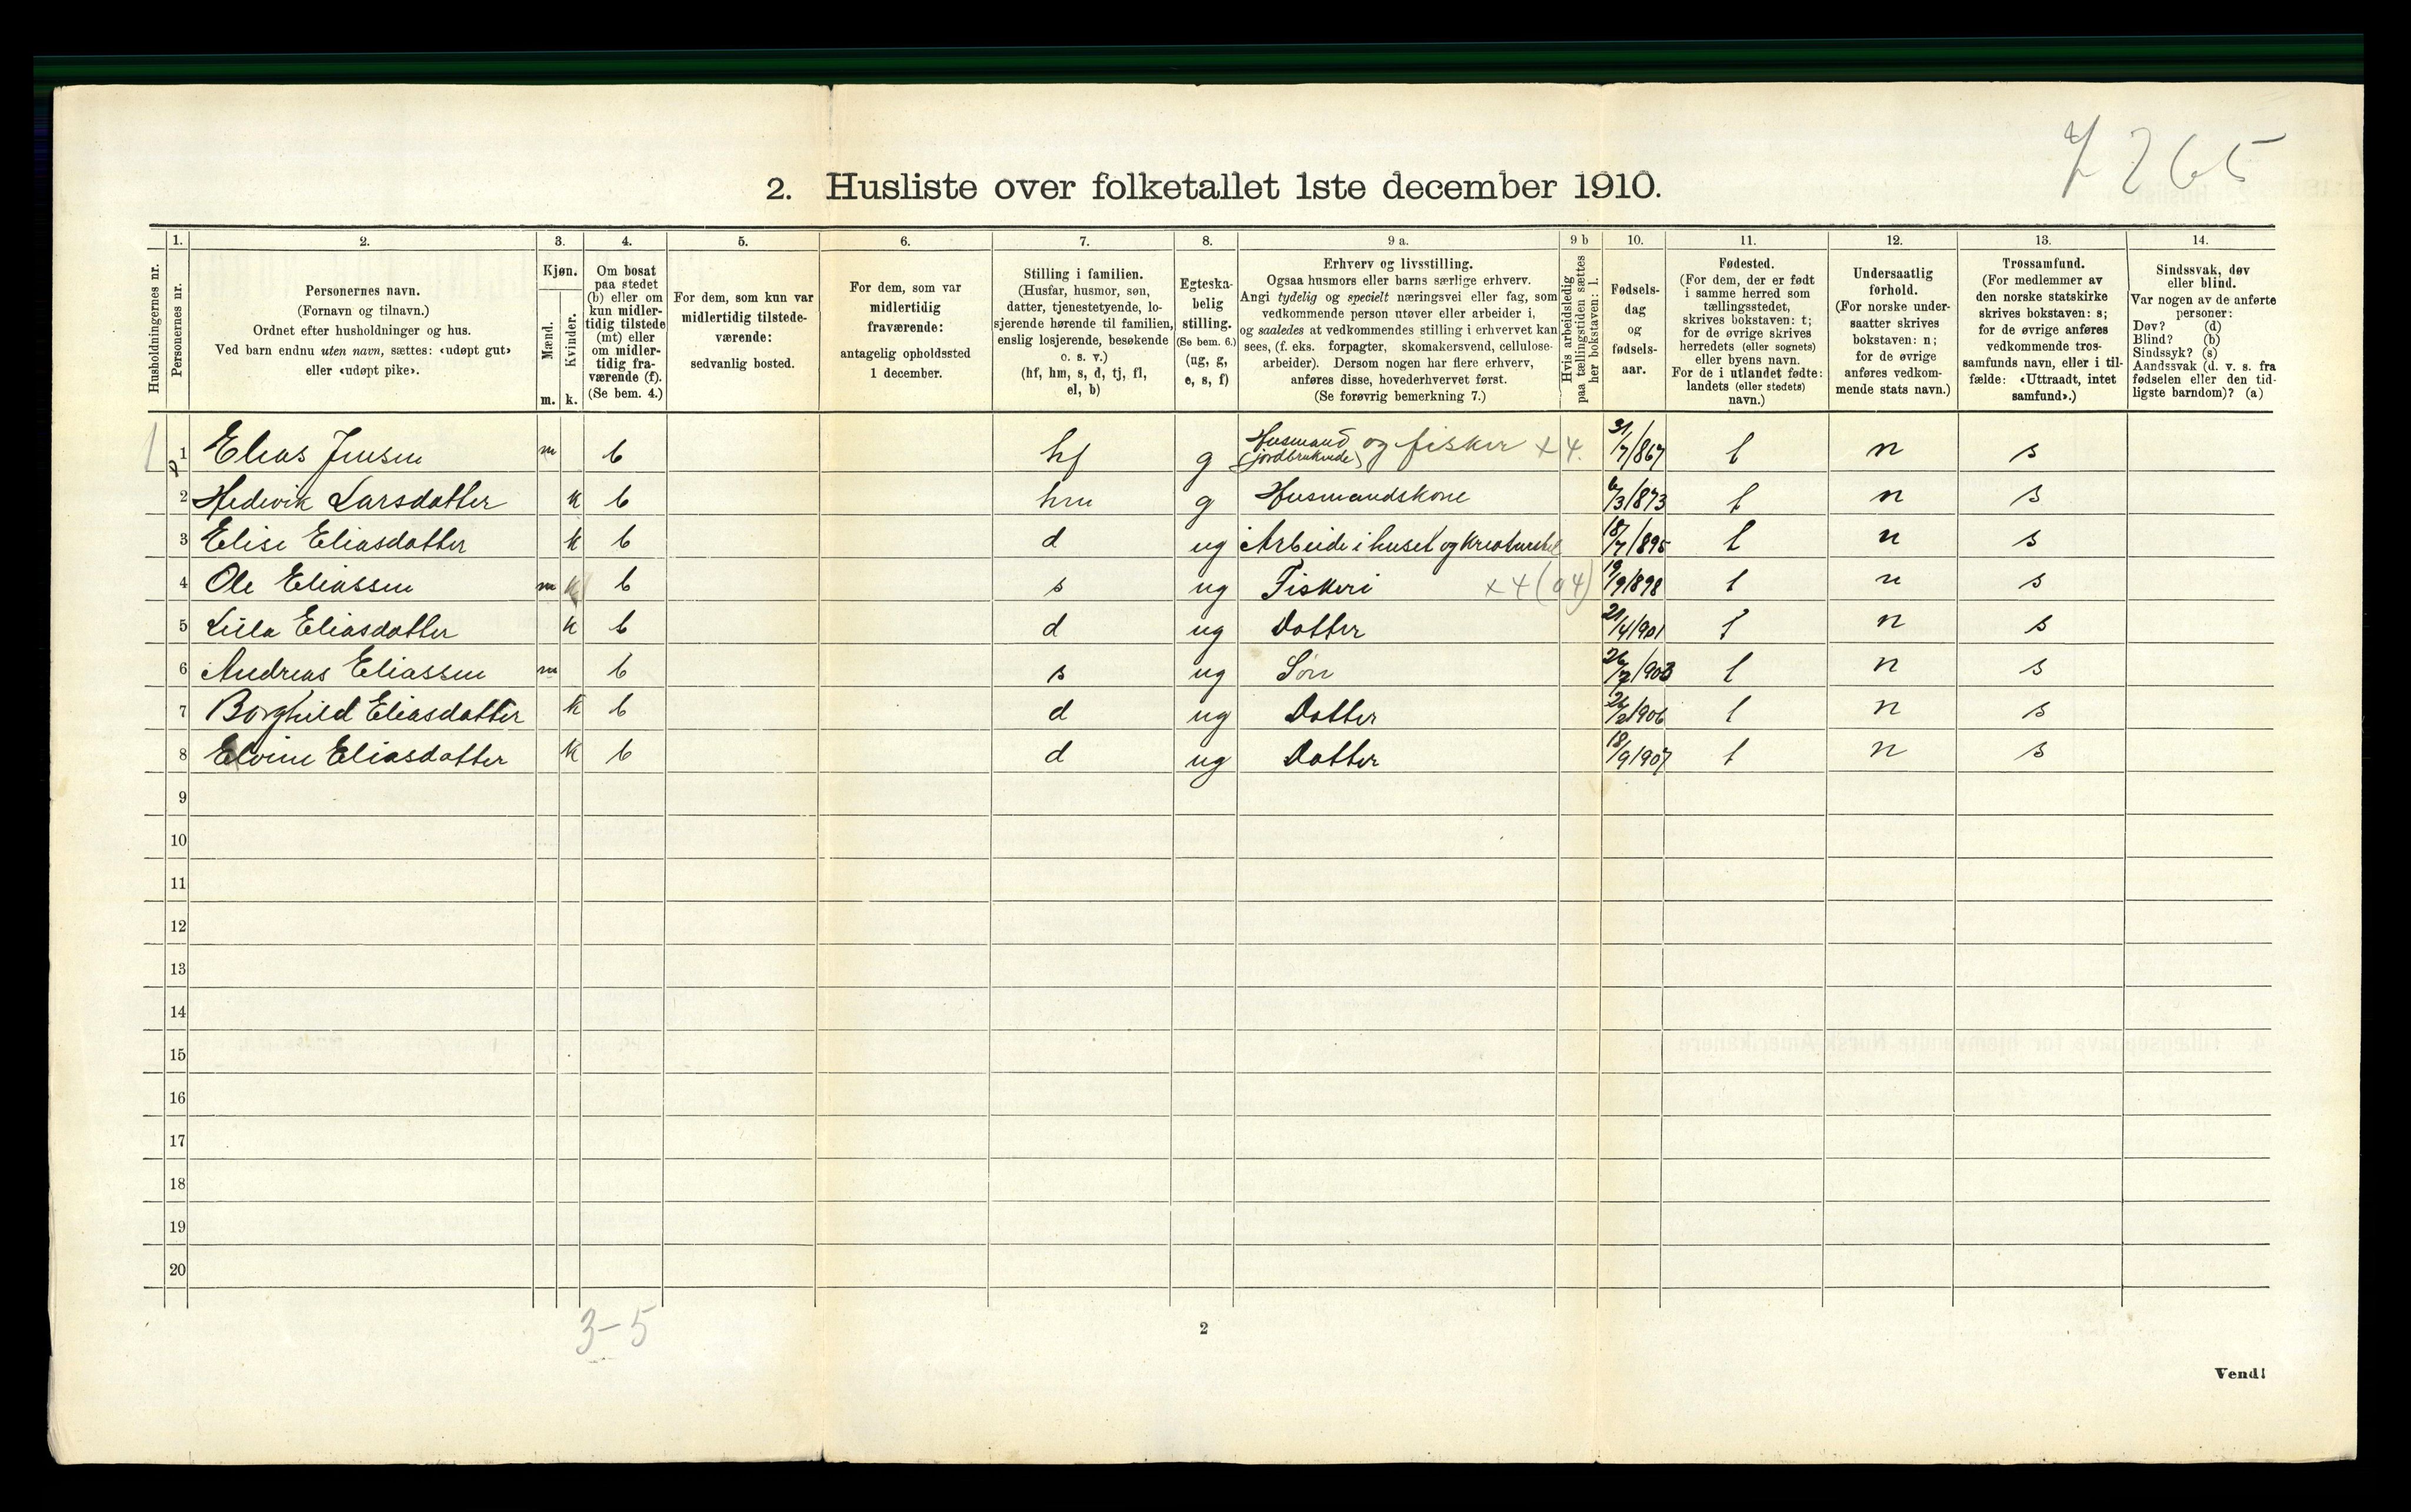 7265
2. Husliste over folketallet 1ste december 1910.
Husholdningernes nr.
1. Personernes nr.
2. Personernes navn.
(Fornavn og tilnavn.)
Ordnet efter husholdninger og hus.
Ved barn endnu uten navn, sættes: «udøpt gut»
eller «udøpt pike».
3. Kjøn.
Mænd. m.
Kvinder. k.
4. Om bosat
paa stedet
(b) eller om
kun midler-
tidig tilstede
(mt) eller
om midler-
tidig fra-
værende (f).
(Se bem. 4.)
5. For dem, som kun var
midlertidig tilstede-
værende:
sedvanlig bosted.
6. For dem, som var
midlertidig
fraværende:
antagelig opholdssted
1 december.
7. Stilling i familien.
(Husfar, husmor, søn,
datter, tjenestetyende, lo-
sjerende hørende til familien,
enslig losjerende, besøkende
o. s. v.)
(hf, hm, s, d, tj, fl,
el, b)
8. Egteska-
belig
stilling.
(Se bem. 6.)
(ug, g,
e, s, f)
9 a. Erhverv og livsstilling.
Ogsaa husmors eller barns særlige erhverv.
Angi tydelig og specielt næringsvei eller fag, som
vedkommende person utøver eller arbeider i,
og saaledes at vedkommendes stilling i erhvervet kan
sees, (f. eks. forpagter, skomakersvend, cellulose-
arbeider). Dersom nogen har flere erhverv,
anføres disse, hovederhvervet først.
(Se forøvrig bemerkning 7.)
9 b Hvis arbeidsledig
paa tællingstiden sættes
her bokstaven: l.
10. Fødsels-
dag
og
fødsels-
aar.
11. Fødested.
(For dem, der er født
i samme herred som
tællingsstedet,
skrives bokstaven: t;
for de øvrige skrives
herredets (eller sognets)
eller byens navn.
For de i utlandet fødte:
landets (eller stedets)
navn.)
12. Undersaatlig
forhold.
(For norske under-
saatter skrives
bokstaven: n;
for de øvrige
anføres vedkom-
mende stats navn.)
13. Trossamfund.
(For medlemmer av
den norske statskirke
skrives bokstaven: s;
for de øvrige anføres
vedkommende tros-
samfunds navn, eller i til-
fælde: «Uttraadt, intet
samfund».)
14. Sindssvak, døv
eller blind.
Var nogen av de anførte
personer:
Døv? (d)
Blind? (b)
Sindssyk? (s)
Aandssvak (d. v. s. fra
fødselen eller den tid-
ligste barndom)? (a)
1 1 Elias Jensen m b hf g Husmand (jordbrukende) og fisker x 4. 31/7/867 t n s
2 Hedevik Larsdatter k b hm g Husmandskone 6/3/873 t n s
3 Elise Eliasdatter k b d ug Arbeide i huset og Kreaturstel 18/7/895 t n s
4 Ole Eliassen m k b s ug Fiskeri x 4 (04) 19/9/898 t n s
5 Lilla Eliasdatter k b d ug Datter 21/4/901 t n s
6 Andreas Eliassen m b s ug Søn 26/2/903 t n s
7 Borghild Eliasdatter k b d ug Datter 26/2/906 t n s
8 Elvine Eliasdatter k b d ug Datter 18/9/907 t n s
9
10
11
12
13
14
15
16
17
18
19
20
3-5
2
Vend!